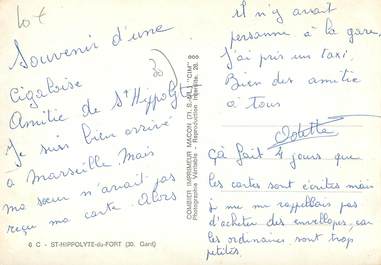 lot
Souvenir d'une
Cigaloise
Amitie de St Hippolyte
Je suis bien arrivé
a Marseille. Mais
ma sœur n'avait pas
reçu ma carte. Alors
6 C - ST-HIPPOLYTE-du-FORT (30. Gard)
COMBIER IMPRIMEUR MACON (71. S.-&-L.) "CIM"
Photographie Véritable - Reproduction Interdite.
il n'y avait
personne à la gare.
J'ai pris un taxi.
Bien des amitie
a tous
Odette
çà fait 4 jours que
les cartes sont écrites mais
je me rappellais pas
d'acheter des envellopes, car
les ordinaires sont trop
petites.